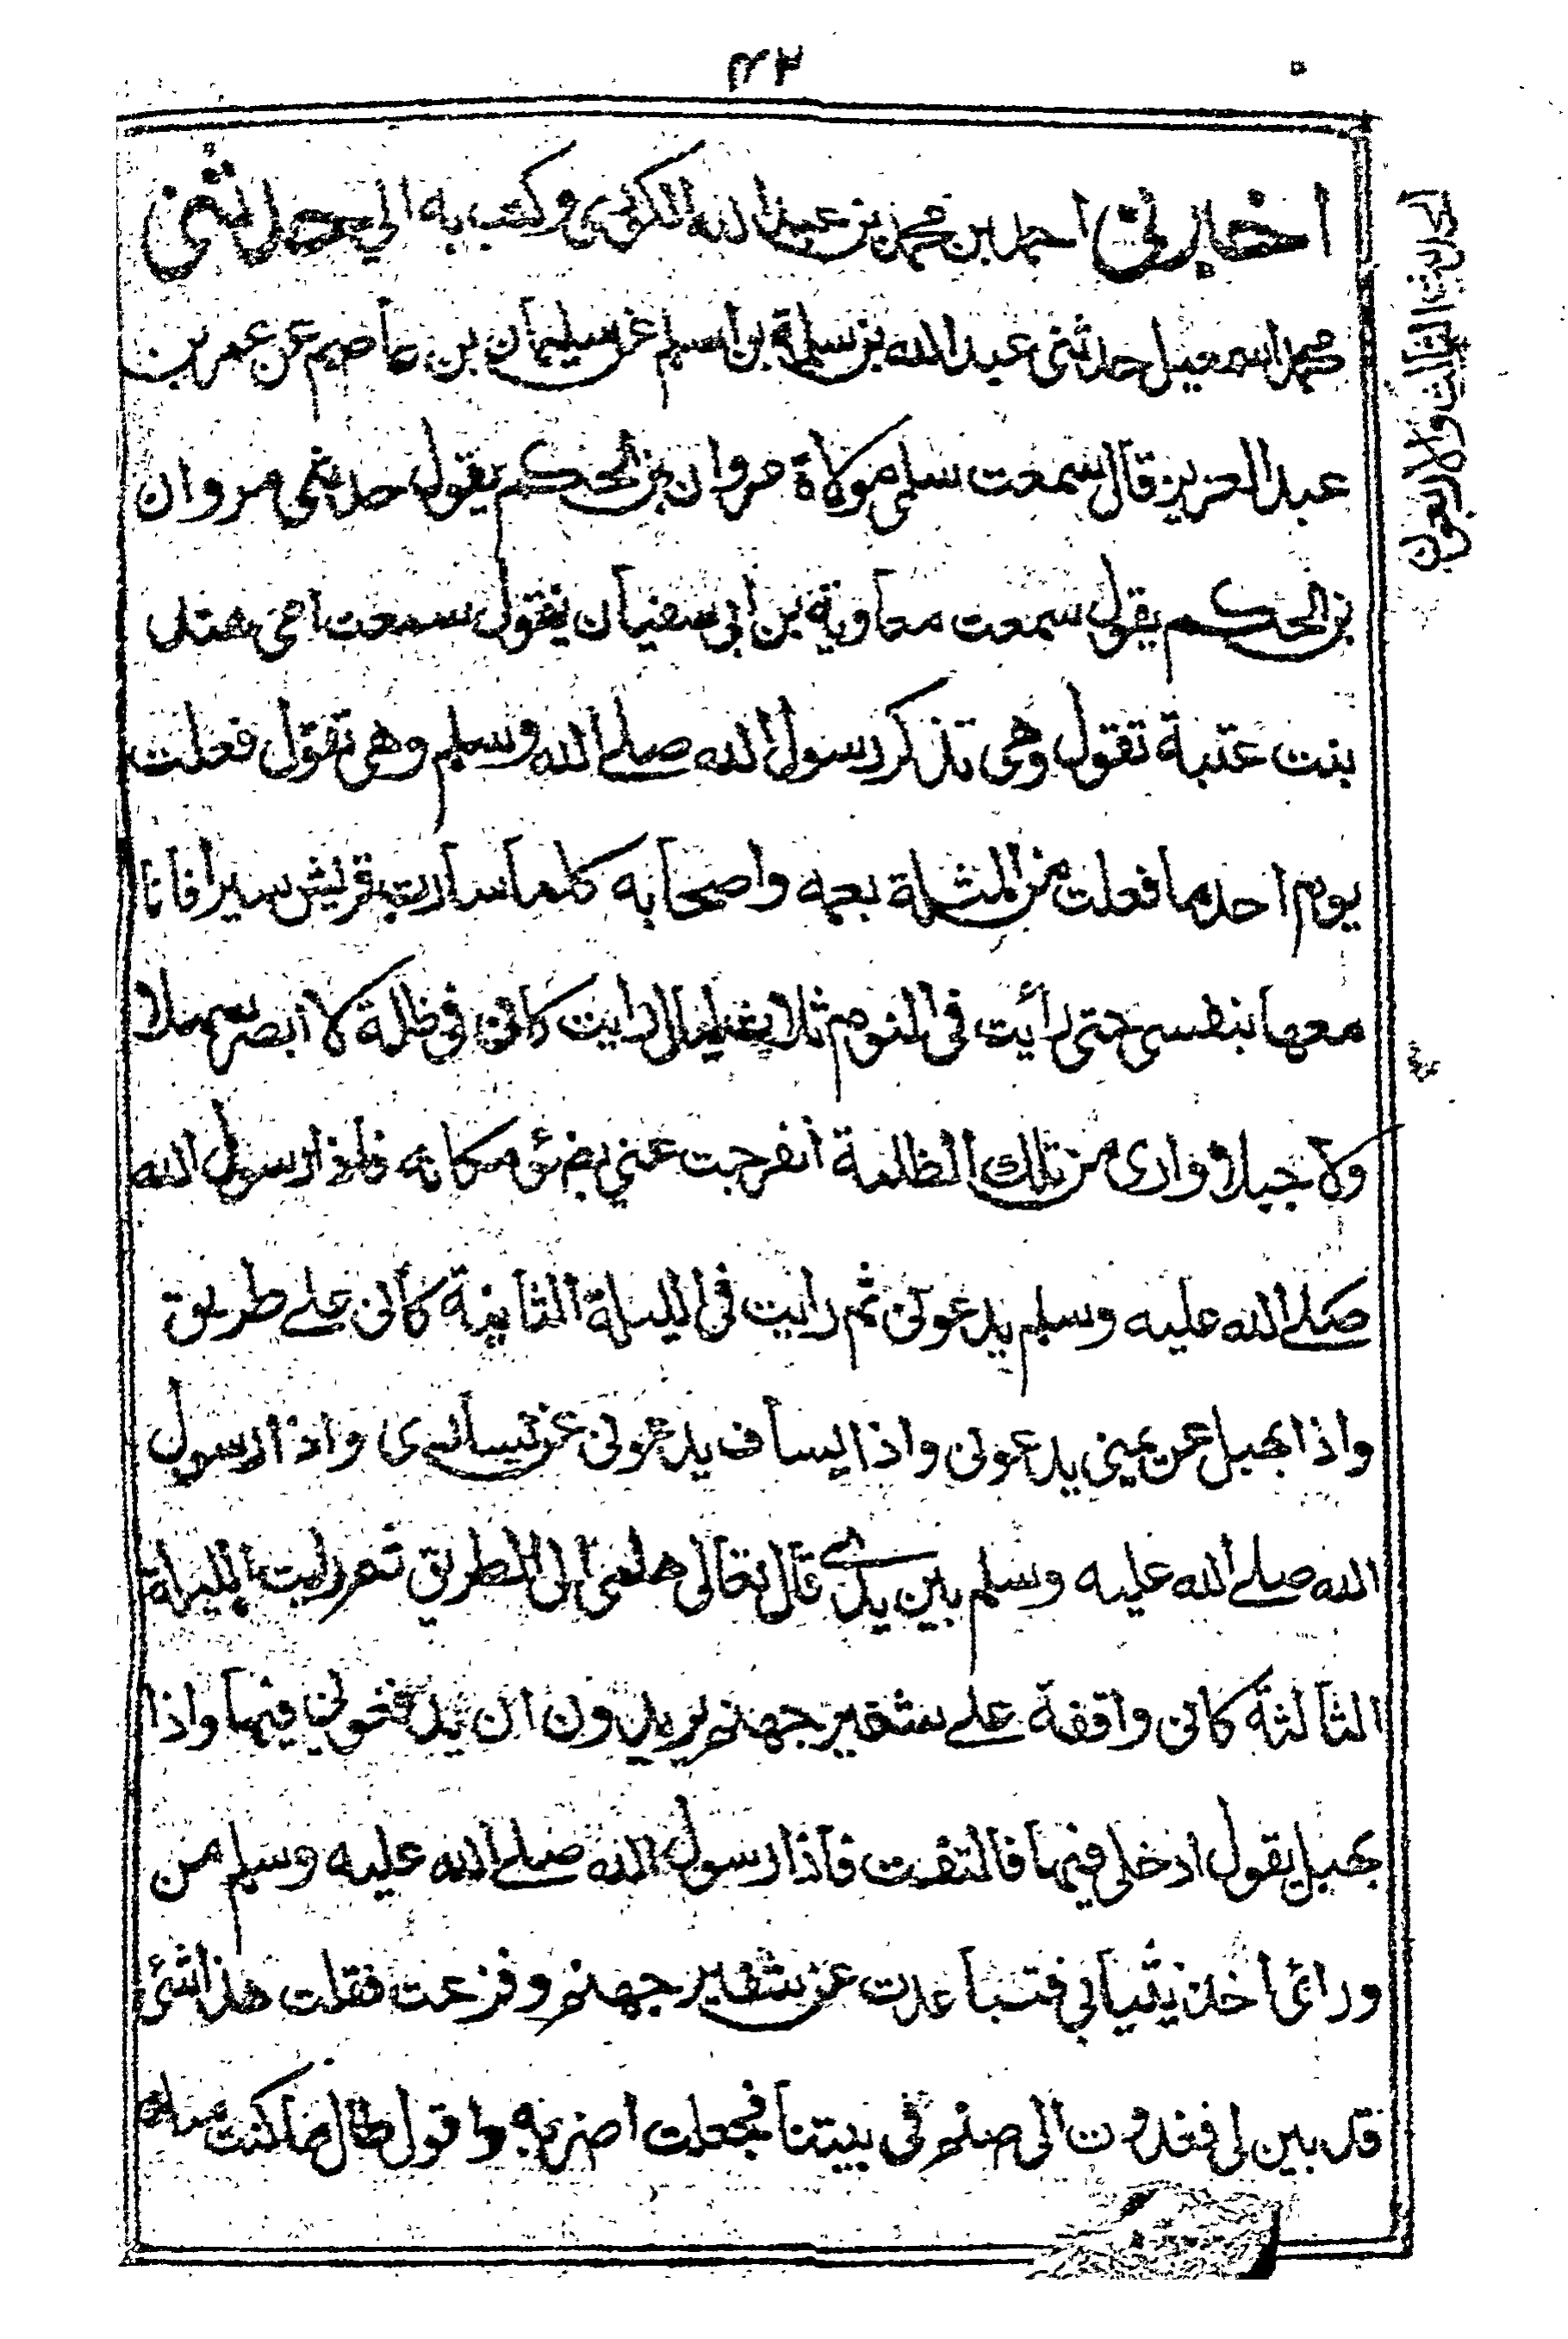 ٤٣
اخبرني احمد بن محمد بن عبد الله الكوفي وكتب به الي حدثني
محمد اسمعيل حدثني عبد الله بن سلمة بن اسلم عن سليمان بن عاصم عن عمر بن
عبد العزيز قال سمعت سلمى مولاة مروان بن الحكم يقول حدثني مروان
بن الحكم يقول سمعت معاوية بن ابي سفيان يقول سمعت امي هند
بنت عتبة تقول وهي تذكر رسول الله صلى الله وسلم وهي تقول فعلت
يوم احد ما فعلت من المثلة بعمه واصحابه كلما سارت قريش سيرا فانا
معها بنفسي حتى رأيت في النوم ثلاث ليال رايت كاني في ظلمة لا ابصر سهلا
ولا جبلا وارى من تلك الظلمة انفرجت عني بضوء مكانه فاذا رسول الله
صلى الله عليه وسلم يدعوني ثم رايت في الليلة الثانية كأني على طريق
واذا بهبل عن يميني يدعوني واذا يساف يدعوني عن يساري واذا رسول
الله صلى الله عليه وسلم بين يدي قال تعالى هلمي الى الطريق ثم رايت الليلة
الثالثة كاني واقفة على شفير جهنم يريدون ان يدفعوني فيها واذا
بهبل يقول ادخلي فيها فالتفت فاذا رسول الله صلى الله عليه وسلم من
ورائي اخذ بثيابي فتباعدت عن شفير جهنم وفزعت فقلت هذا شئ
قد بين لي فغدوت الى صنم في بيتنا فجعلت اضربه واقول طال ما كنت منك
الحديث الثالث والاربعون